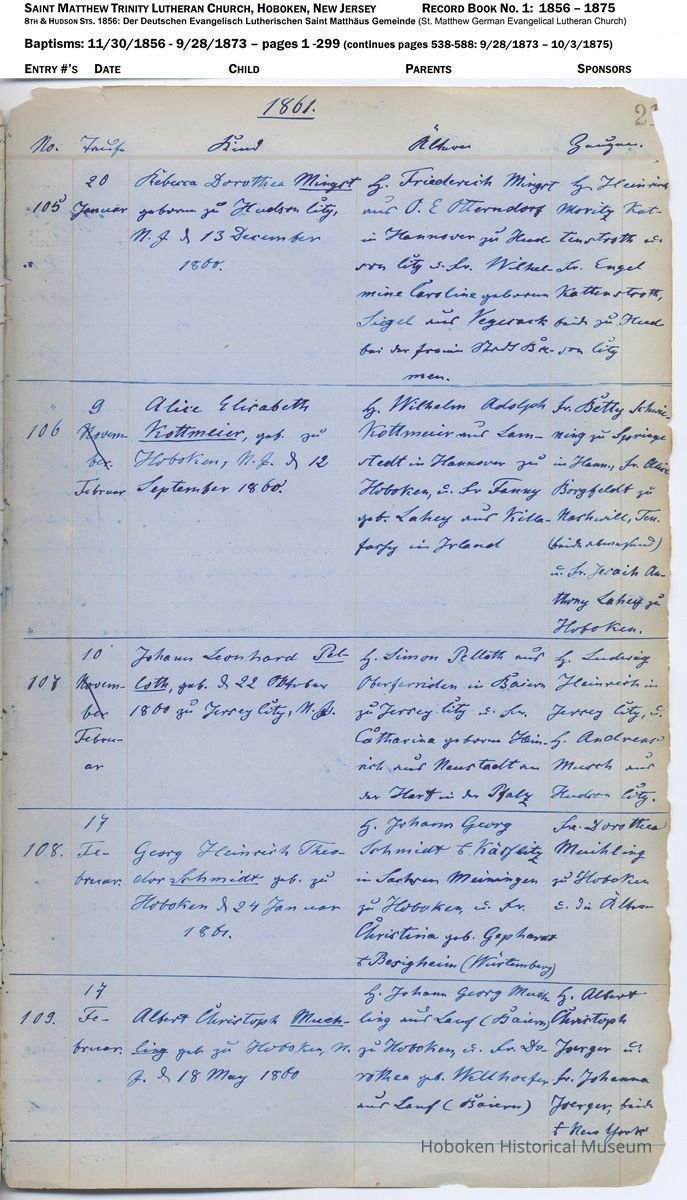 SAINT MATTHEW TRINITY LUTHERAN CHURCH, HOBOKEN, NEW JERSEY RECORD BOOK NO. 1: 1856 – 1875
8TH & HUDSON STS. 1856: Der Deutschen Evangelisch Lutherischen Saint Matthäus Gemeinde (St. Matthew German Evangelical Lutheran Church)
Baptisms: 11/30/1856 - 9/28/1873 – pages 1 -299 (continues pages 538-588: 9/28/1873 – 10/3/1875)
ENTRY #'S DATE CHILD PARENTS SPONSORS
1861.
No. Taufe Kind Ältern Zeugen.
105
20
Januar
Rebecca Dorothea Mingst
geboren zu Hudson City,
N. J. d. 13 December
1860.
H. Friederich Mingst
aus O. E Otterndorf
in Hannover zu Hud-
son City u. Fr. Wilhel-
mine Caroline geboren
Siegel aus Vegesack
bei der freien Stadt Bre-
men.
H. Heinrich
Moritz Kat-
tenstroth u.
Fr. Engel
Kattenstroth,
beide zu Hud
son City
106
9
Novem-
ber
Februar
Alice Elisabeth
Kottmeier, geb. zu
Hoboken, N. J. d. 12
September 1860.
H. Wilhelm Adolph
Kottmeier aus Lam-
stedt in Hannover zu
Hoboken, u. Fr Fanny
geb. Lahey aus Killa-
in Irland
Fr. Betty
ning zu Springe
in Hann., Fr. Alice
Borgfeldt zu
Nashvill, Ten.
(beide abwesend)
u. Fr. An-
thony Lahey zu
Hoboken.
107
10
Novem-
ber
Februar
Johann Leonhard Pel-
loth, geb. d. 22 Oktober
1860 zu Jersey City, N. J.
H. Simon Pelloth aus
Oberferriden in Baiern
zu Jersey City u. Fr.
Catharina geboren Hein-
rich aus Neustadt an
der Hart in der Pfalz
H. Ludwig
Heinrich in
Jersey City, u.
H. Andreas
Musch aus
Hudson City.
108.
17
Fe-
bruar.
Georg Heinrich Theo-
dor Schmidt geb. zu
Hoboken d. 24 Januar
1861.
H. Johann Georg
Schmidt
in Sachsen Meiningen
zu Hoboken, u. Fr.
Christina geb. Gephardt
Besigheim (Würtemberg)
Fr. Dorothea
Muehling
zu Hoboken
u. die Ältern
109.
17
Fe-
bruar.
Albert Christoph Mueh-
ling geb. zu Hoboken, N.
J. d. 18 May 1860
H. Johann Georg Mueh
ling aus Lauf (Baiern)
zu Hoboken, u. Fr. Do-
rothea geb. Wellhoefer
aus Lauf (Baiern)
H. Albert
Christoph
Joerger u.
Fr. Johanna
Joerger, beide
New York
Hoboken Historical Museum